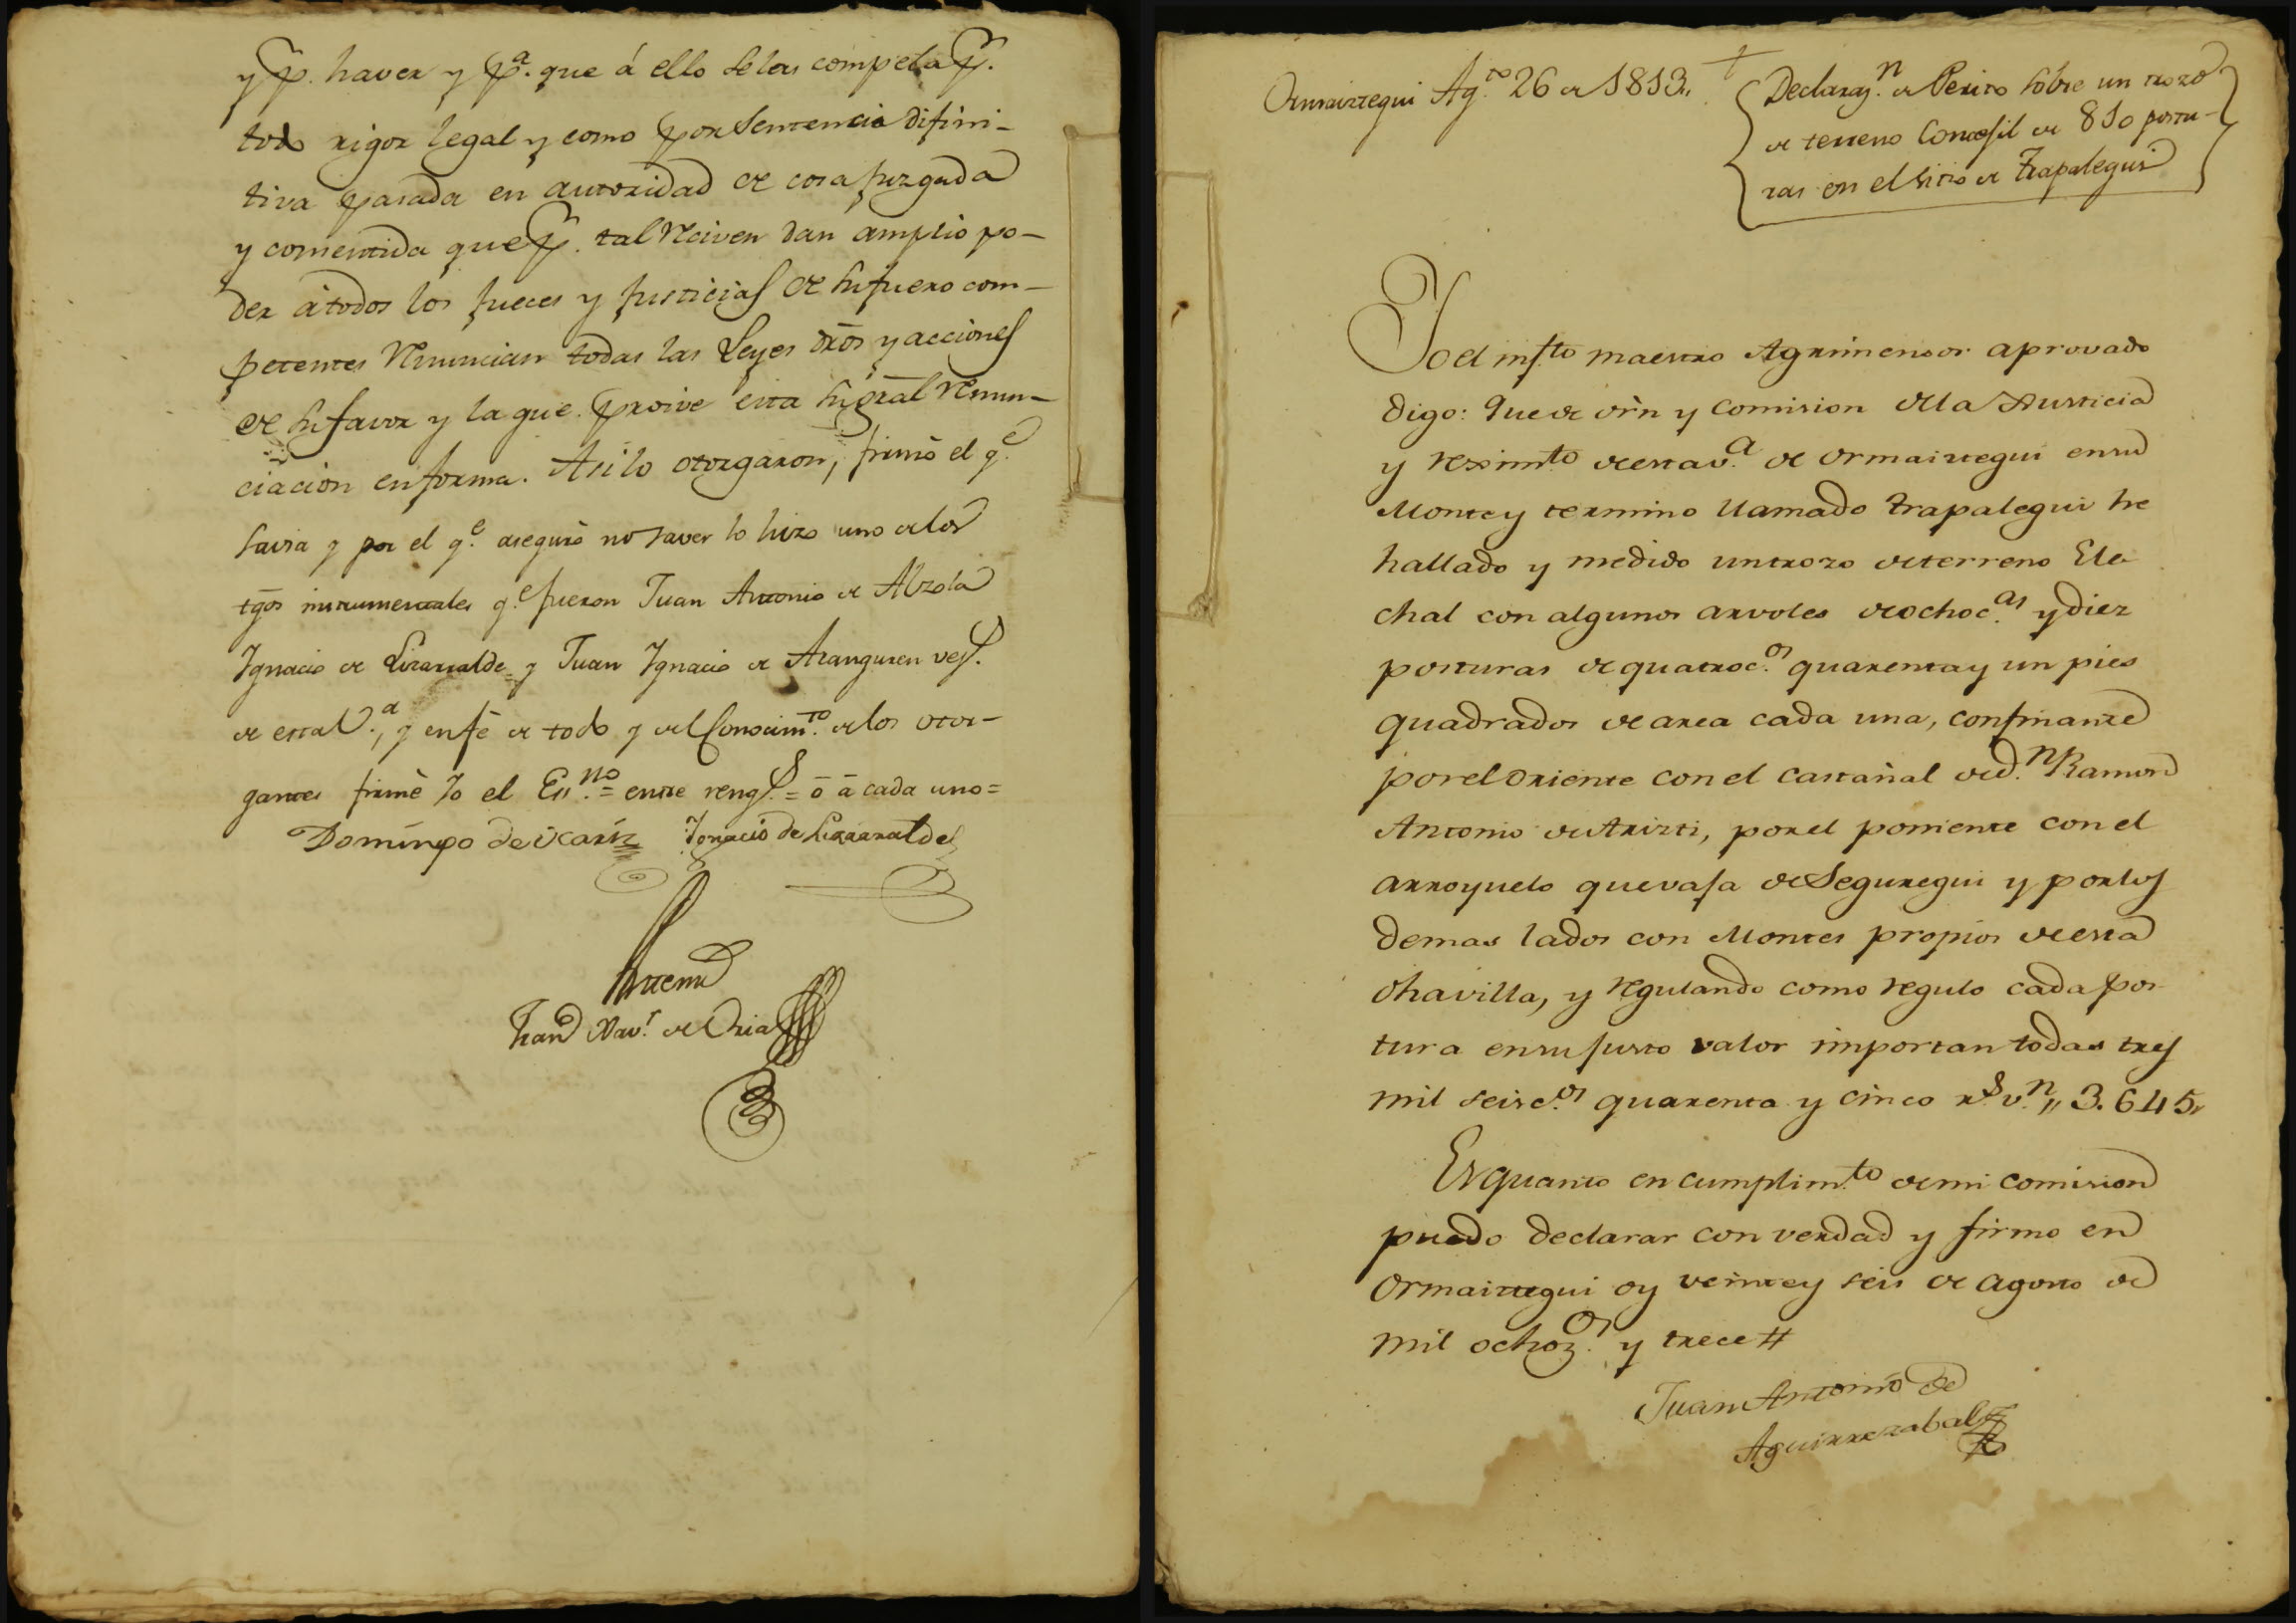 y p. haver y p.ª que á ello se les compela p.
todo rigor legal y como por Sentencia difini-
tiva pasada en autoridad de cosa juzgada
y consentida que p. tal reciven dan amplio po-
der á todos los jueces y justicias de su fuero com-
petentes renuncian todas las Leyes dr̃os y acciones
de su favor y la que proive esta su gr̃al renun-
ciacion en forma. Asi lo otorgaron, firmò el q.e
savia y por el q.e aseguró no saver lo hizo uno de los
tgõs instrumentales q.e fueron Juan Antonio de Alzola
Ignacio de Lizarralde y Juan Ignacio de Aranguren vez.s
de esta V.ª, y en fé de todo y del Conocim.to de los otor-
gantes firmè Yo el Es.no = entre reng.s = ò à cada uno =
Domingo de Ycariz Ignacio de Lizarralde
Antemi
Fran.co Xav.r de Oria
Ormaiztegui Ag.to 26 de 1813,,
Declaraz.n de Perito sobre un trozo
de terreno Concegil de 810 postu-
ras en el sitio de Trapalegui
Yo el insf.to maestro Agrimensor aprovado
digo: Que de orn̄ y Comision de la Justicia
y rexim.to de esta v.ª de Ormaiztegui en su
Monte y termino llamado Trapalegui he
hallado y medido un trozo de terreno Ele-
chal con algunos arvoles de ochoc.as y diez
posturas de quatroc.os quarenta y un pies
quadrados de area cada una, confinante
por el oriente con el castañal de d.n Ramon
Antonio de Arizti, por el poniente con el
arroyuelo que vaja de Seguregui y por los
demas lados con Montes propios de esta
dha villa, y regulando como regulo cada pos-
tura en su justo valor importan todas tres
mil seisc.os quarenta y cinco r.s v.n,, 3.645,,
Es quanto en cumplim.to de mi comision
puedo declarar con verdad y firmo en
Ormaiztegui oy veinte y seis de agosto de
mil ochoz.os y trece #
Juan Antonio de
Aguirrezabal